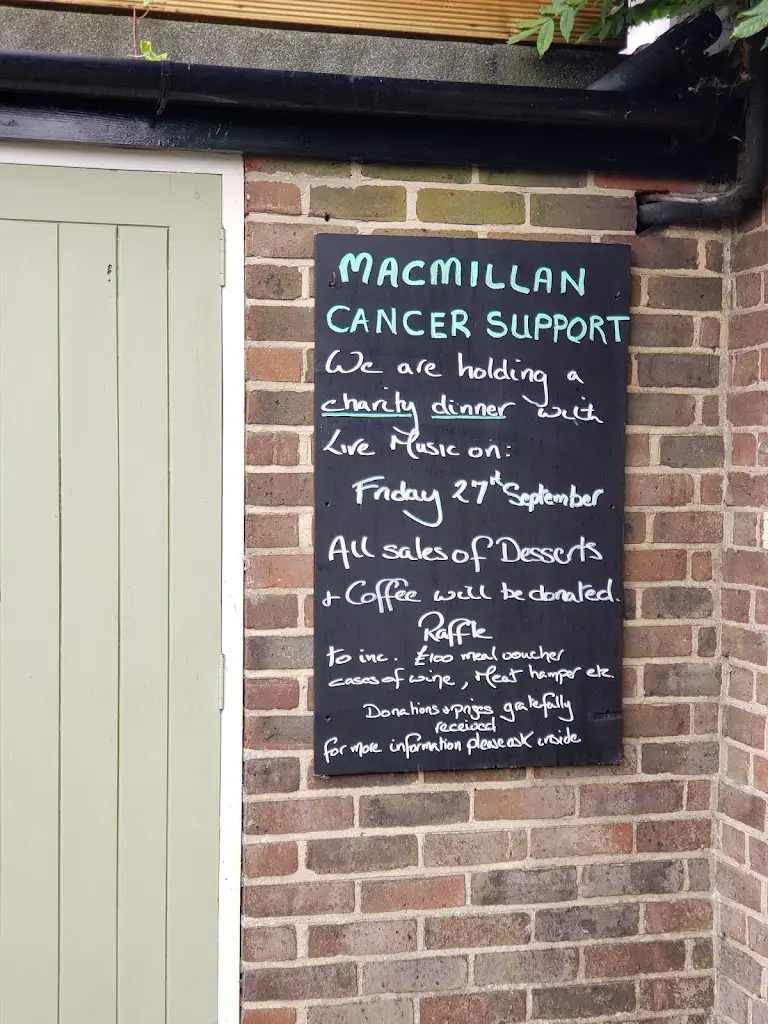 MACMILLAN
CANCER SUPPORT
We are holding a
charity dinner with
Live Music on:
Friday 27th September
All sales of Desserts
+ Coffee will be donated.
Raffle
to inc. £100 meal voucher
cases of wine, Meat hamper etc.
Donations + prizes gratefully
received
for more information please ask inside